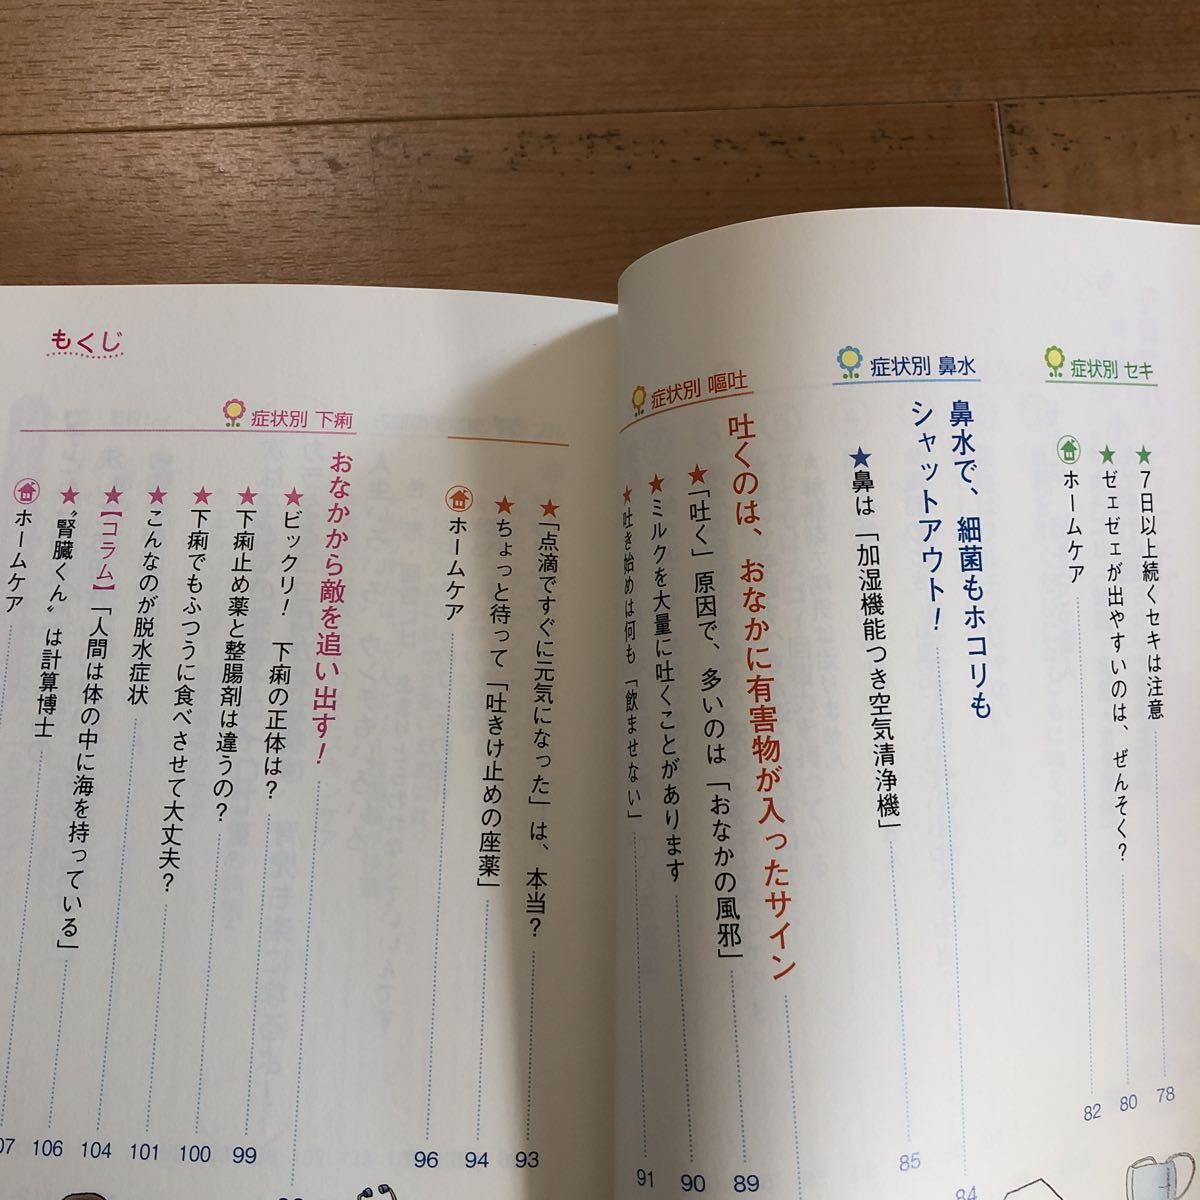 症状別 セキ
★7日以上続くセキは注意
78
★ゼェゼェが出やすいのは、ぜんそく?
80
ホームケア
82
症状別 鼻水
鼻水で、細菌もホコリも
シャットアウト!
84
★鼻は「加湿機能つき空気清浄機」
85
症状別 嘔吐
吐くのは、おなかに有害物が入ったサイン
★「吐く」原因で、多いのは「おなかの風邪」
89
★ミルクを大量に吐くことがあります
90
★吐き始めは何も「飲ませない」
91
もくじ
★「点滴ですぐに元気になった」は、本当?
93
★ちょっと待って「吐きけ止めの座薬」
94
ホームケア
96
症状別 下痢
おなかから敵を追い出す!
★ビックリ! 下痢の正体は?
★下痢止め薬と整腸剤は違うの?
99
★下痢でもふつうに食べさせて大丈夫?
100
★こんなのが脱水症状
101
★【コラム】「人間は体の中に海を持っている」
104
★〝腎臓くん〟は計算博士
106
ホームケア
07